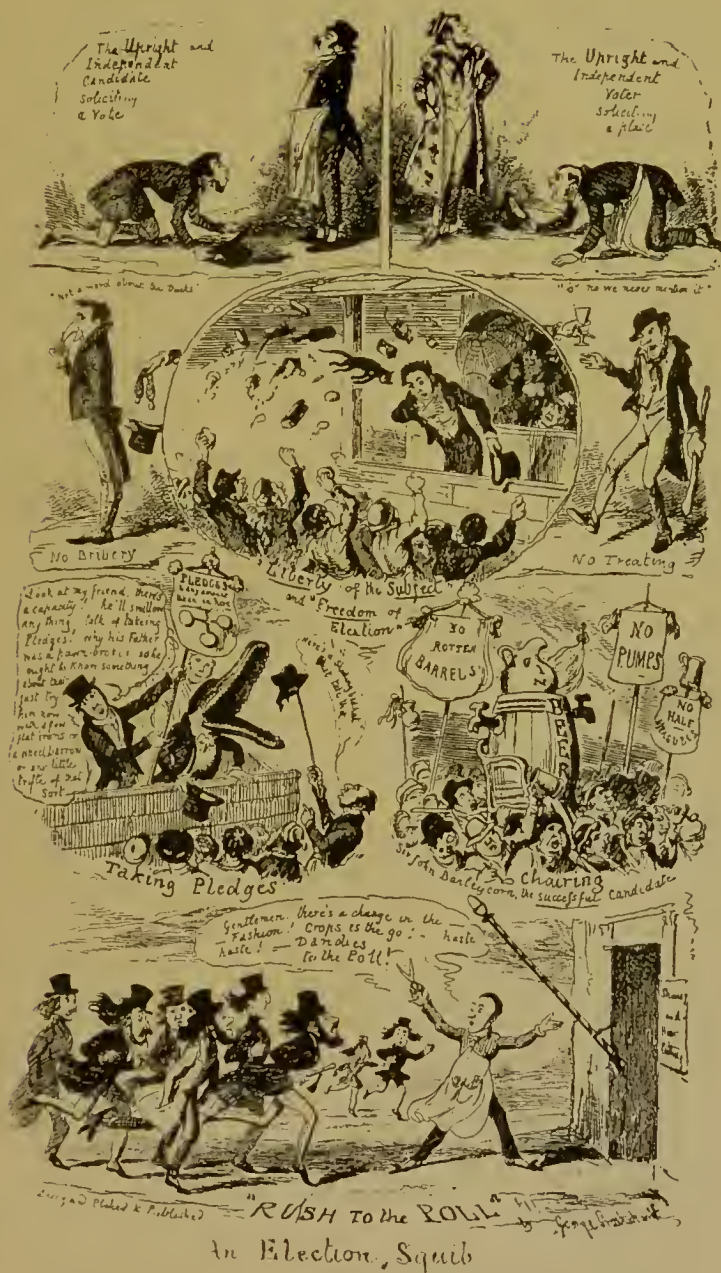 The Upright and
Independent
Candidate
Soliciting
a Vote
The Upright and
Independent
Voter
Soliciting
a place
"Not a word about the Ducks"
"O no we never mention it"
No Bribery
No Treating
"Liberty of the Subject
and "Freedom of
Election"
Look at my friend, there's
a capacity! he'll swallow
any thing! talk of taking
Pledges! why his Father
was a pawn-broker so he
ought to know something
about them
just try
him now
with a few
flat irons or
a wheel barrow
or any little
trifle of that
sort
PLEDGES
taken in here
Here's a
Taking Pledges
NO
ROTTEN
BARRELS
NO
PUMPS
NO
HALF
MEASURES
BEER
Chairing
Sir John Barleycorn, the successful Candidate
Gentlemen, there's a change in the
Fashion! Crops is the go! — haste
haste! — Dandies
to the Poll!
Shaving
and
Hair
Cutting
Design'd Etched & Published
"RUSH To the POLL"
by George Cruikshank
An Election Squib